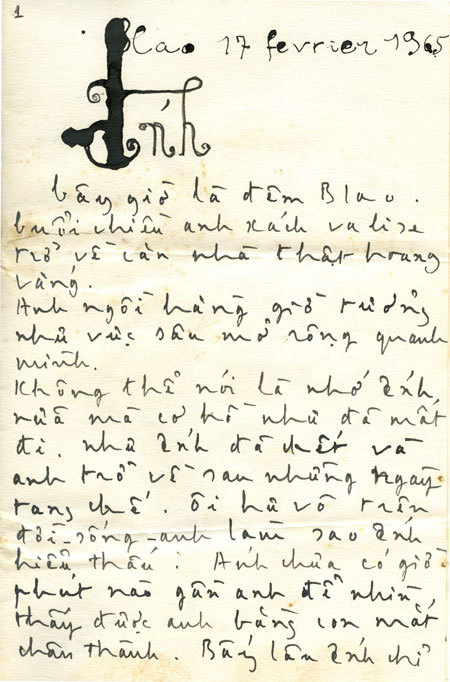 1
Blao 17 fevrier 1965
Ánh
bây giờ là đêm Blao.
buổi chiều anh xách valise
trở về căn nhà thật hoang
vắng.
Anh ngồi hàng giờ tưởng
như vực sâu mở rộng quanh
mình.
Không thể nói là nhớ Ánh
nữa mà cơ hồ như đã mất
đi. như Ánh đã chết và
anh trở về sau những ngày
tang chế. Ôi hư vô trên
đời-sống-anh làm sao Ánh
hiểu thấu. Ánh chưa có giờ
phút nào gần anh để nhìn
thấy được anh bằng con mắt
chân thành. Bấy lâu Ánh chỉ